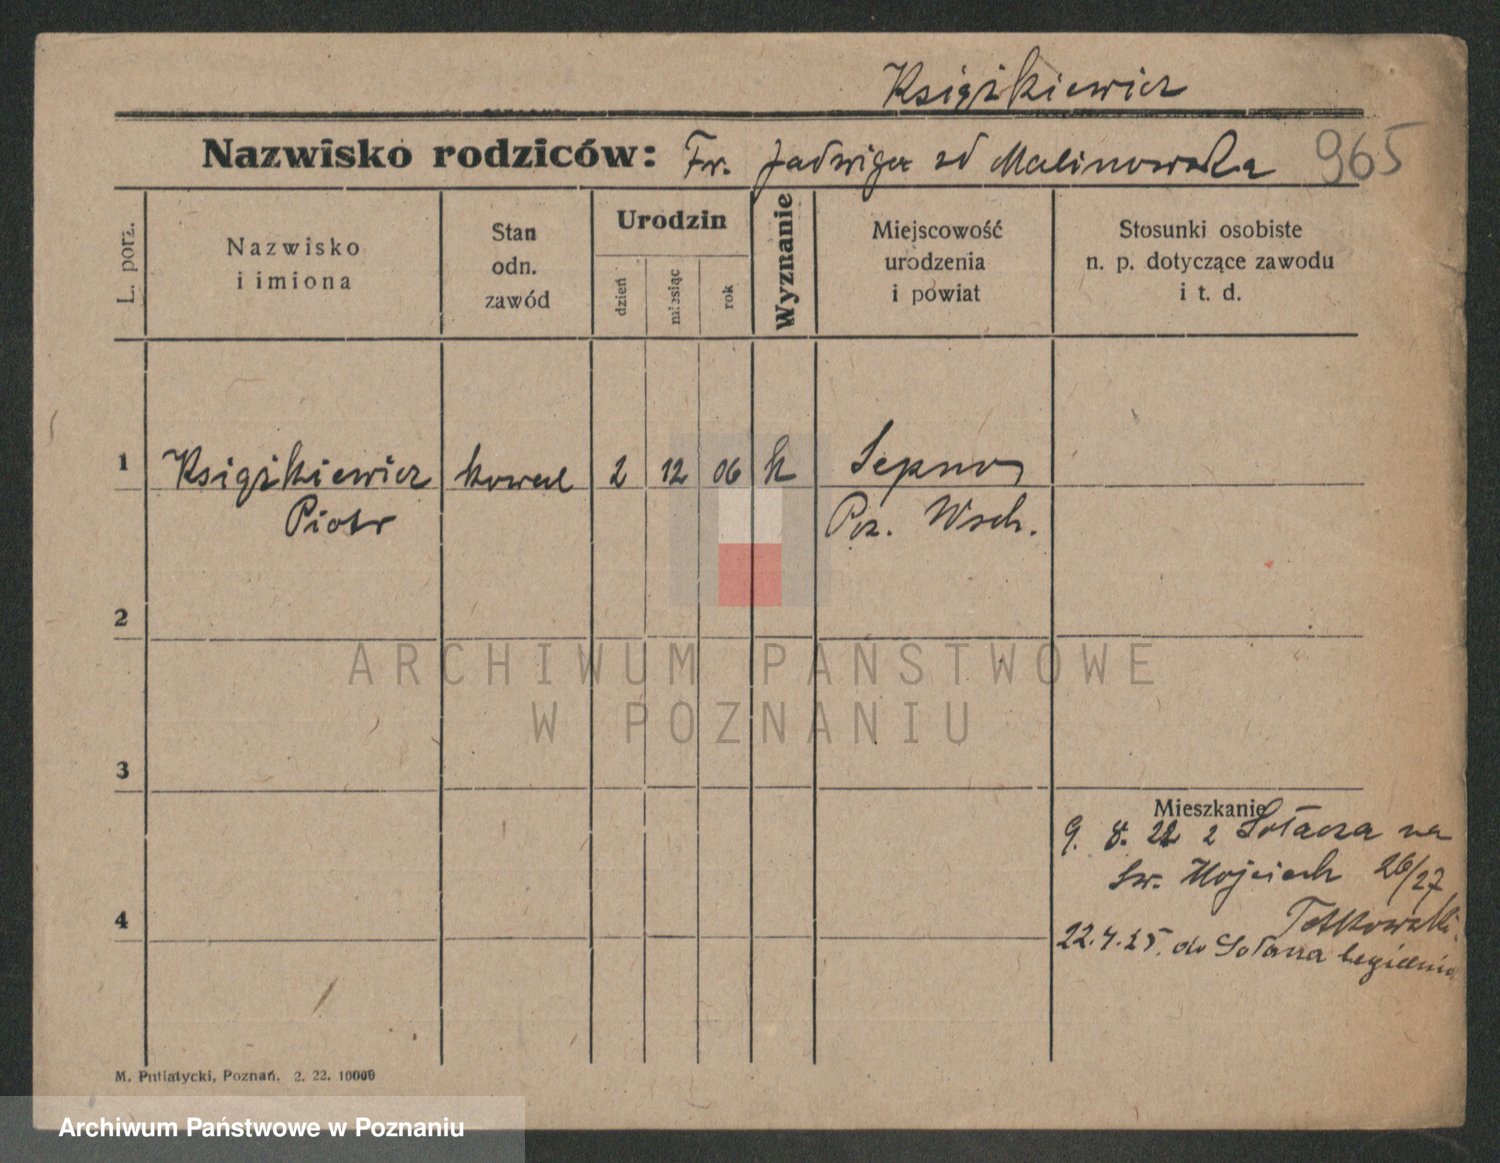 Książkiewicz
Nazwisko rodziców: Fr. Jadwiga zd Malinowska 965
L. porz.
Nazwisko
i imiona
Stan
odn.
zawód
Urodzin
dzień
miesiąc
rok
Wyznanie
Miejscowość
urodzenia
i powiat
Stosunki osobiste
n. p. dotyczące zawodu
i t. d.
1 Książkiewicz kowal 2 12 06 k Sepno
Piotr Poz. Wsch.
2
3
Mieszkanie
9. 8. 22 z Sołacza na
św. Wojciech 26/27
4
22.4.25. do Sołacza
M. Putiatycki, Poznań. 2. 22. 10000
ARCHIWUM PAŃSTWOWE
W POZNANIU
Archiwum Państwowe w Poznaniu